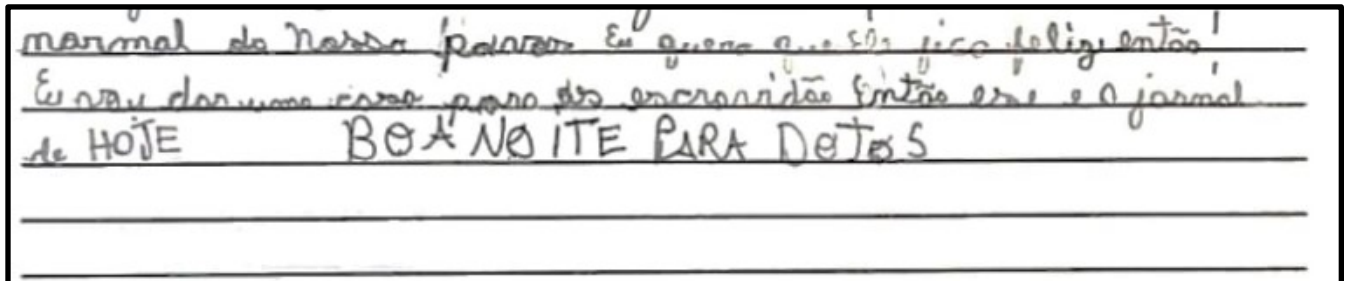 normal do nosso Eu quero que fica feliz então
Eu vou dar uma casa para escravidão Então ese e o jornal
de HOJE BOA NOITE PARA DOTOS